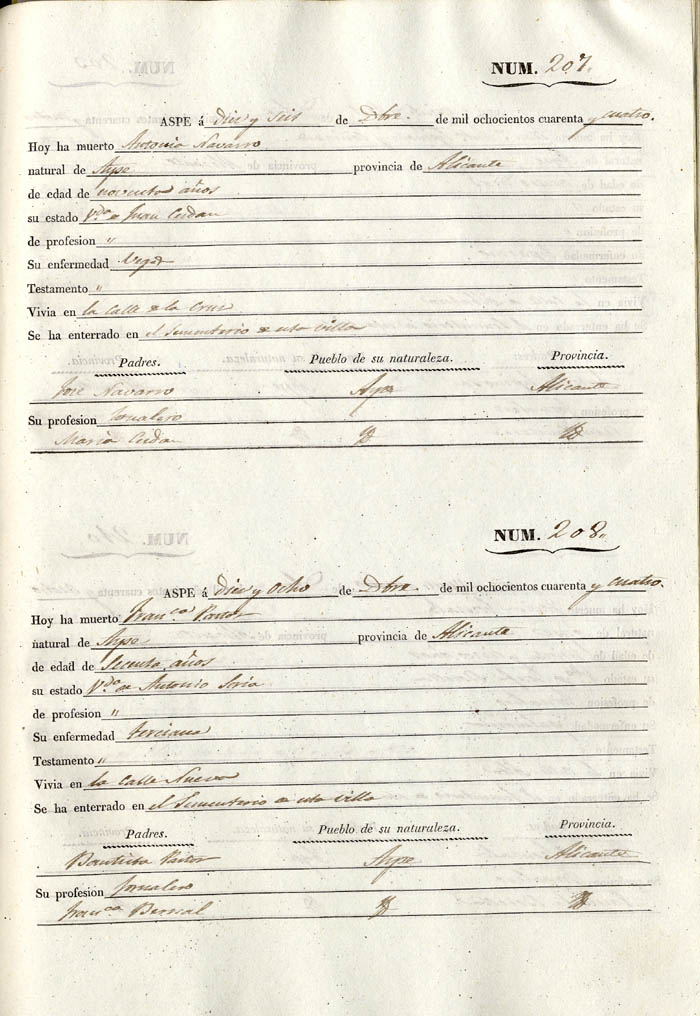 NUM. 207.
ASPE á diez y seis de Dbre. de mil ochocientos cuarenta y cuatro.
Hoy ha muerto Antonia Navarro
natural de Aspe provincia de Alicante
de edad de noventa años
su estado Vda de Juan Cerdan
de profesion "
Su enfermedad Vejez
Testamento "
Vivia en la Calle de la Cruz
Se ha enterrado en el Sementerio de esta villa
Padres. Pueblo de su naturaleza. Provincia.
José Navarro Aspe Alicante
Su profesion Jornalero
Maria Cerdan
NUM. 208.
ASPE á diez y ocho de Dbre. de mil ochocientos cuarenta y cuatro.
Hoy ha muerto Franca Pastor
natural de Aspe provincia de Alicante
de edad de secenta años
su estado Vda de Antonio Soria
de profesion "
Su enfermedad Terciana
Testamento "
Vivia en la Calle Nueva
Se ha enterrado en el Sementerio de esta villa
Padres. Pueblo de su naturaleza. Provincia.
Bautista Pastor Aspe Alicante
Su profesion Jornalero
Franca Bernal